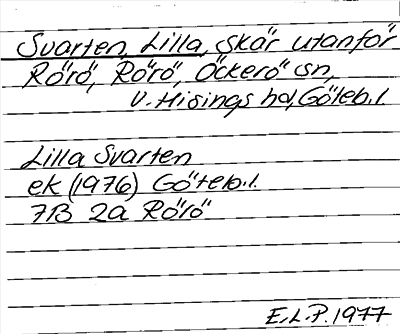 Svarten, Lilla, skär utanför
Rörö, Rörö, Öckerö sn,
V. Hisings hd, Göteb.l.
Lilla Svarten
ek (1976) Göteb.l.
7B 2a Rörö
E.L.P. 1977